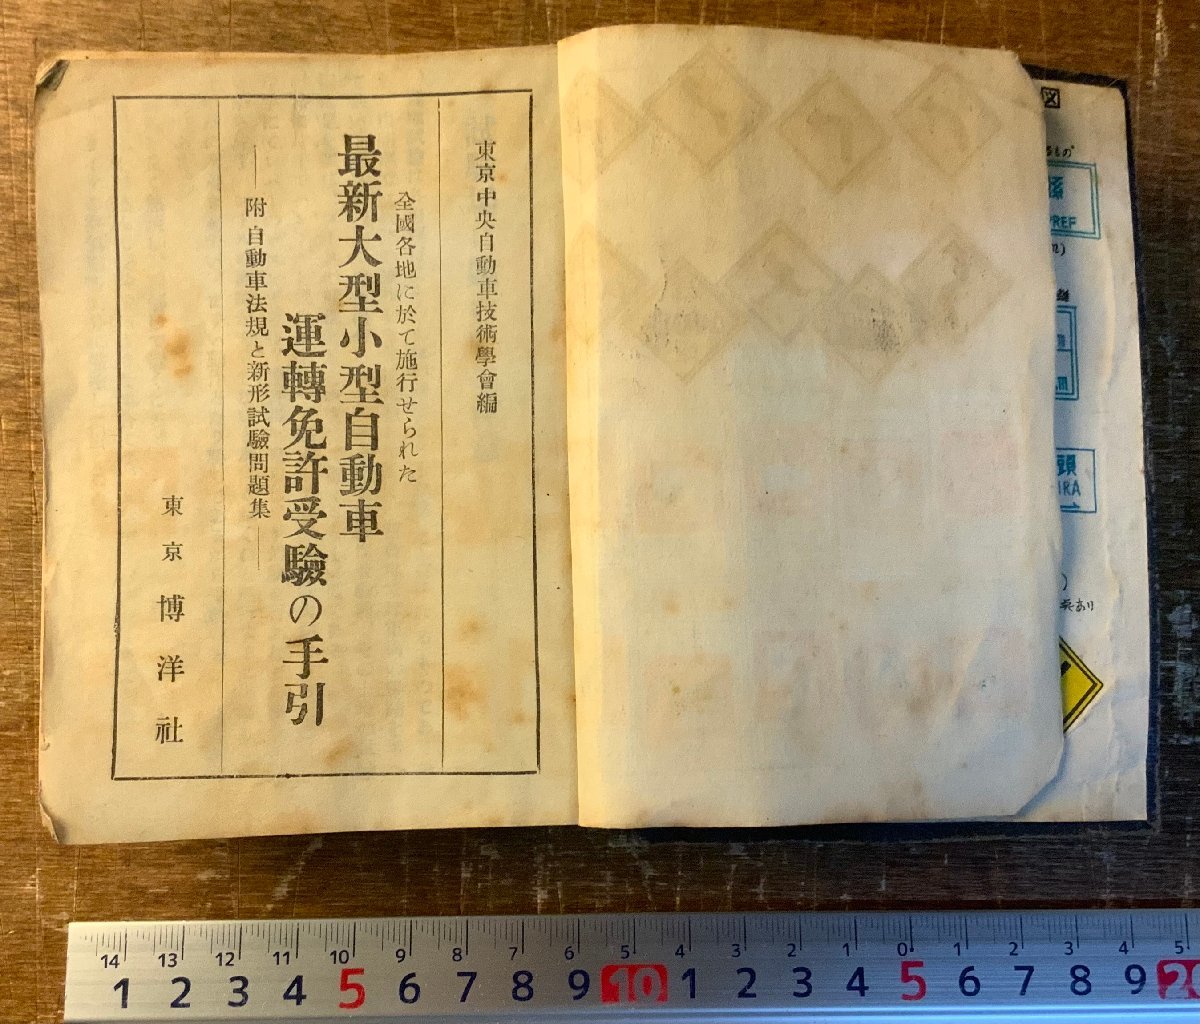 図
るもの
縣
PREF
頭
IRA
東京中央自動車技術學會編
全國各地に於て施行せられた
最新大型小型自動車
運轉免許受驗の手引
― 附 自動車法規と新形試驗問題集 ―
東京 博洋社
14 13 12 11 10 9 8 7 6 5 4 3 2 1 0 1 2 3 4 5
1 2 3 4 5 6 7 8 9 10 1 2 3 4 5 6 7 8 9 20